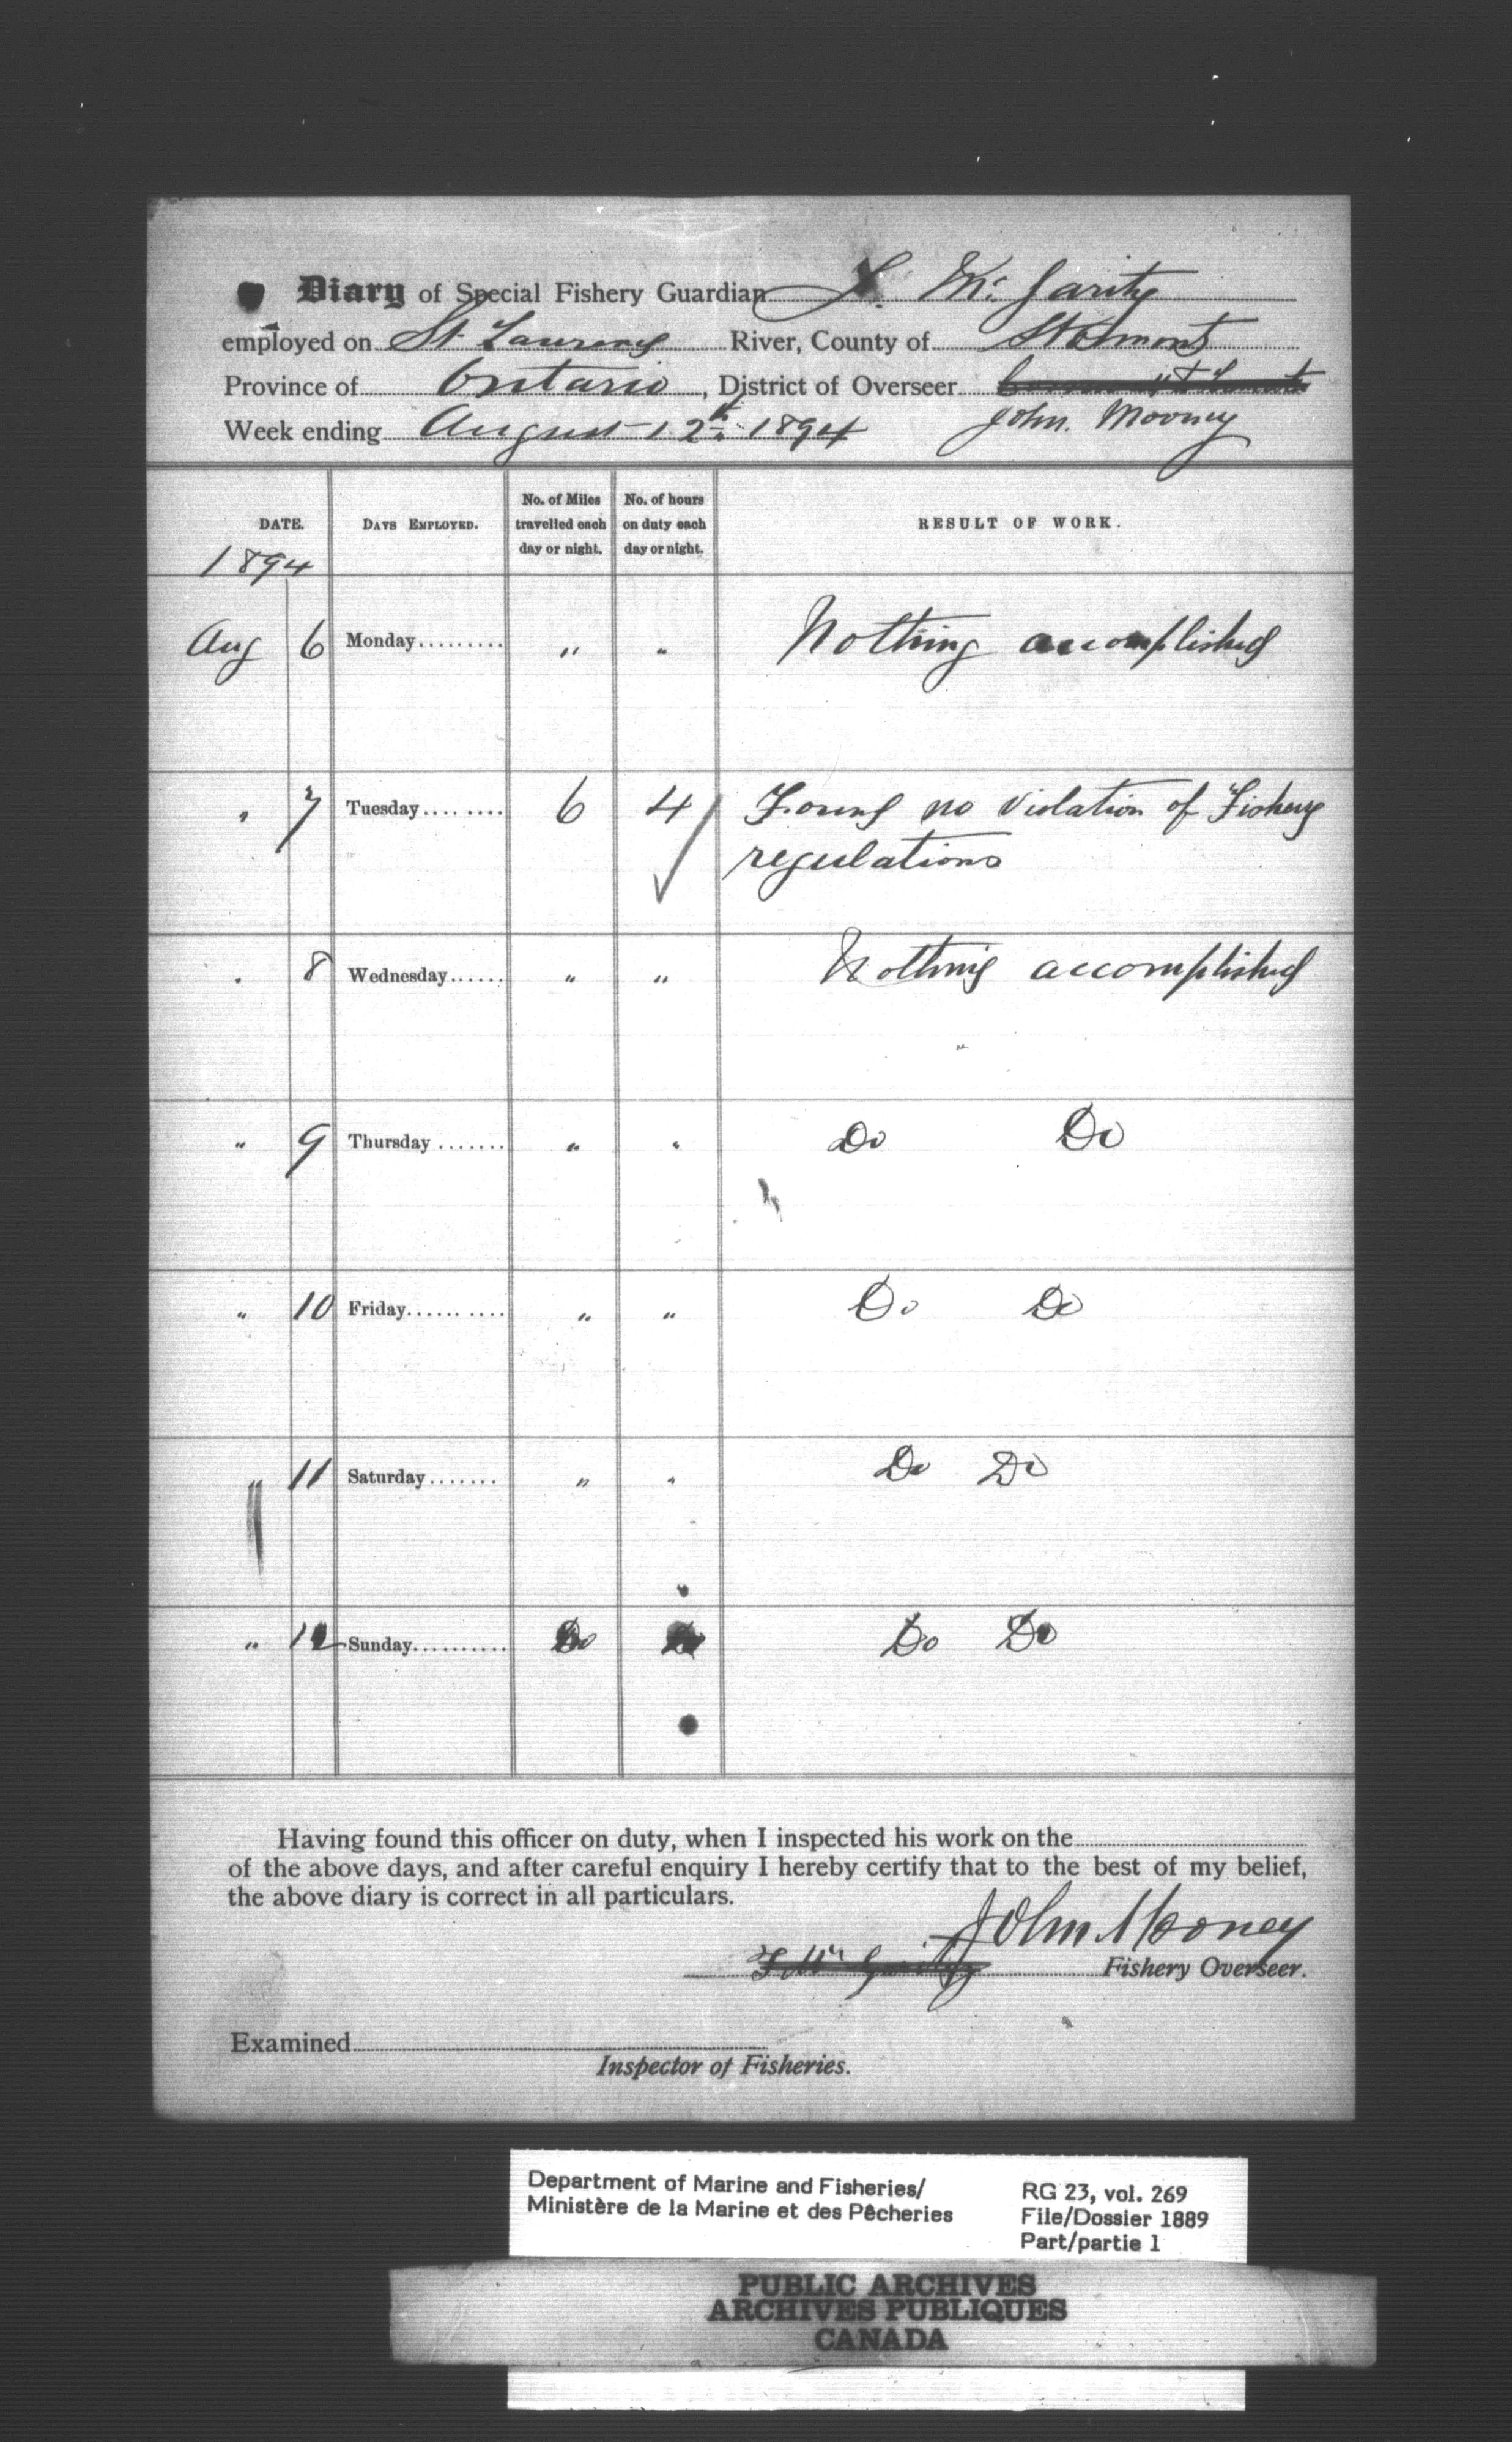 Diary of Special Fishery Guardian McGarity
employed on St Laurence River, County of Stormont
Province of Ontario, District of Overseer
John. Mooney
Week ending August 12th 1894
DATE. DAYS EMPLOYED. No. of Miles travelled each day or night. No. of hours on duty each day or night. RESULT OF WORK.
1894
Aug 6 Monday " " Nothing accomplished
" 7 Tuesday 6 4 Found no violation of Fishery
regulations
" 8 Wednesday " " Nothing accomplished
"
" 9 Thursday " " Do Do
" 10 Friday " " Do Do
" 11 Saturday " " Do Do
" 12 Sunday Do Do Do Do
Having found this officer on duty, when I inspected his work on the
of the above days, and after careful enquiry I hereby certify that to the best of my belief,
the above diary is correct in all particulars.
John Mooney
Fishery Overseer.
Examined
Inspector of Fisheries.
Department of Marine and Fisheries/
Ministère de la Marine et des Pêcheries
RG 23, vol. 269
File/Dossier 1889
Part/partie 1
PUBLIC ARCHIVES
ARCHIVES PUBLIQUES
CANADA